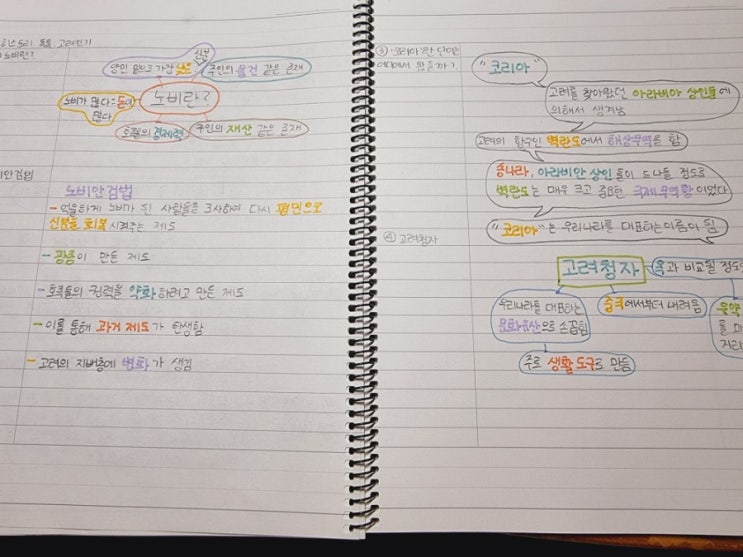 고려전기
노비란?
양인 밑으로 가장 낮은 신분
주인의 물건 같은 존재
노비가 많다 = 돈이
많다
노비란?
호족의 경제력
주인의 재산 같은 존재
노비안검법
- 억울하게 노비가 된 사람들을 조사하여 다시 평민으로
신분을 회복 시켜주는 제도
- 광종이 만든 제도
- 호족들의 권력을 약화 하려고 만든 제도
- 이를 통해 과거 제도가 탄생함
- 고려의 지배층에 변화가 생김
③ "코리아"란 단어
어디에서 왔을까?
"코리아"
고려를 찾아왔던 아라비아 상인들에
의해서 생겨남
고려의 항구인 벽란도에서 해상무역을 함
송나라, 아라비안 상인들이 드나들 정도로
벽란도는 매우 크고 중요한 국제 무역항 이었다
"코리아"는 우리나라를 대표하는 이름이 됨
④ 고려청자
고려청자
옥과 비교될 정도
우리나라를 대표하는
문화유산으로 손꼽힘
중국에서부터 내려옴
주로 생활 도구로 만듦
유약